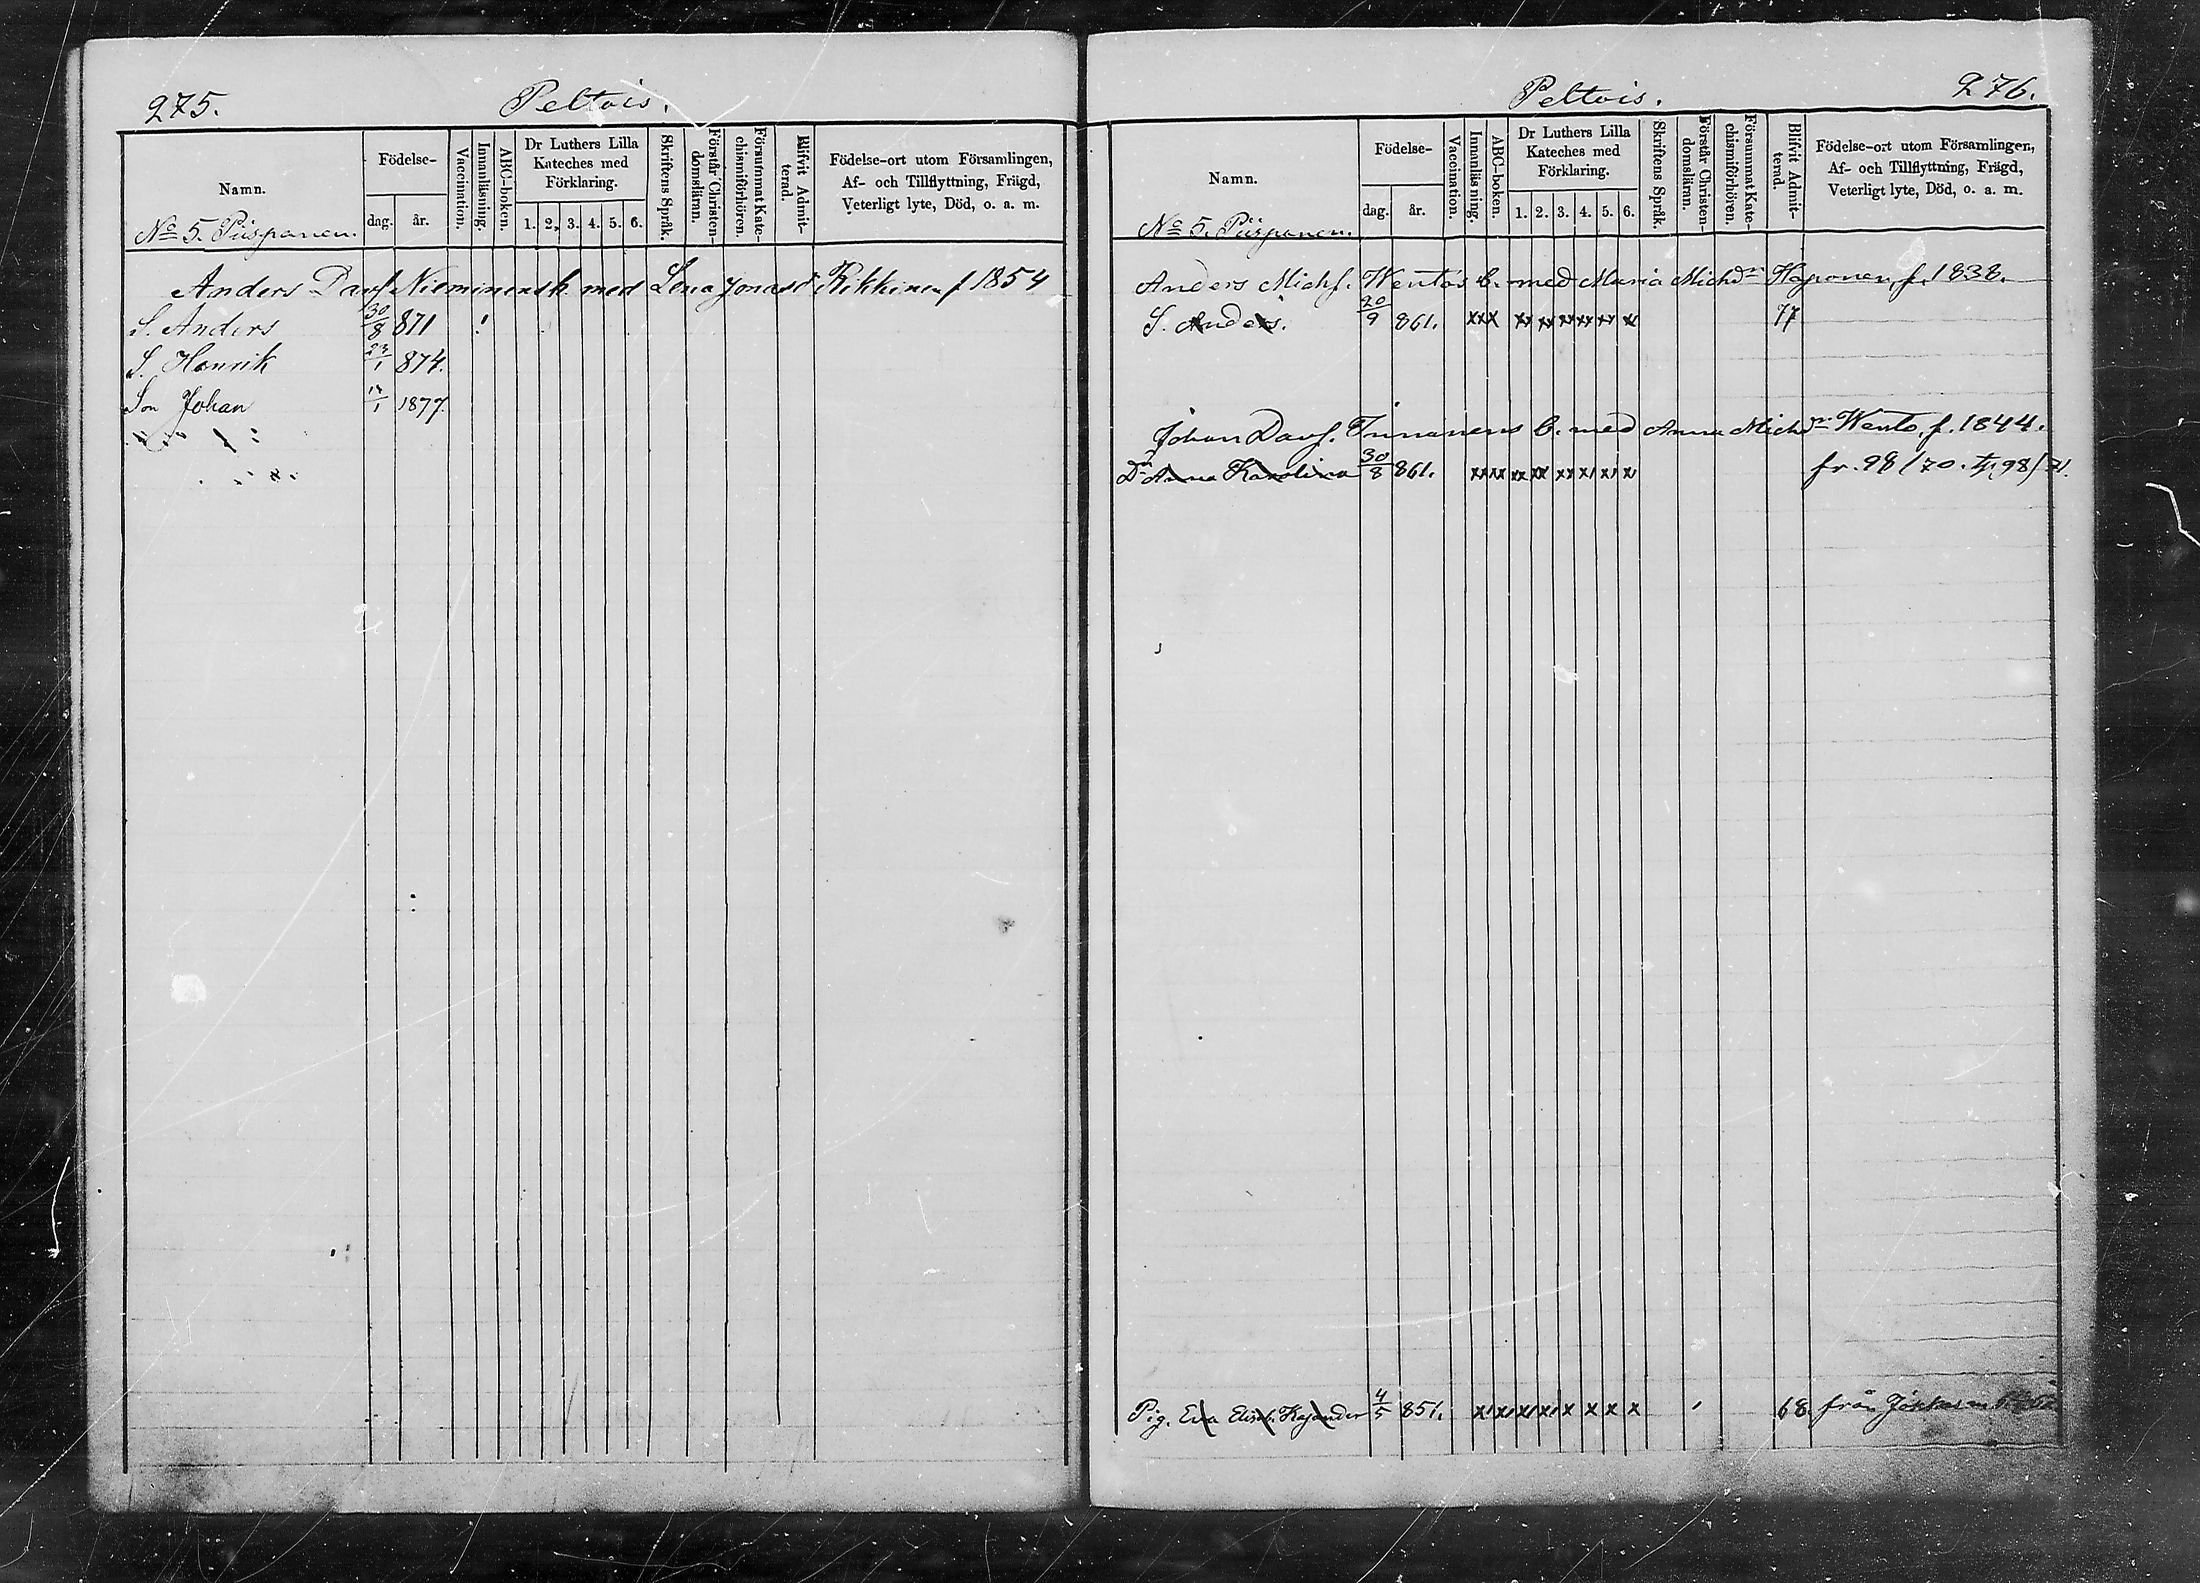 275.
Peltois.
Namn.
Födelse-
dag.
år.
Vaccination.
Innanläsning.
ABC-boken.
Dr Luthers Lilla
Kateches med
Förklaring.
1. 2. 3. 4. 5. 6.
Skriftens Språk.
Förstår Christen-
domsläran.
Försummat Kate-
chismiförhören.
Blifvit Admit-
terad.
Födelse-ort utom Församlingen,
Af- och Tillflyttning, Frägd,
Veterligt lyte, Död, o. a. m.
No 5. Piispanen.
Anders Davs. Nieminens b. med Lena Jonasd. Rikkinen f 1854
S. Anders 30/8 871
S. Henrik 23/1 874.
Son Johan 1877.
Peltois.
276.
Namn.
Födelse-
dag.
år.
Vaccination.
Innanläsning.
ABC-boken.
Dr Luthers Lilla
Kateches med
Förklaring.
1. 2. 3. 4. 5. 6.
Skriftens Språk.
Förstår Christen-
domsläran.
Försummat Kate-
chismiförhören.
Blifvit Admit-
terad.
Födelse-ort utom Församlingen,
Af- och Tillflyttning, Frägd,
Veterligt lyte, Död, o. a. m.
No 5. Piispanen.
Anders Michs. Wento's b. med Maria Michdr Haponen, f. 1838.
S. Anders. 20/9 861. 77
Johan Davs. Innanens b. med Anna Michdr Wento, f. 1844.
Dr Anna Karolina 30/8 861. fr. 98/70. t. 98/71.
Pig. Eva Elisab. Kajander 4/5 851. 68. från Jökkas